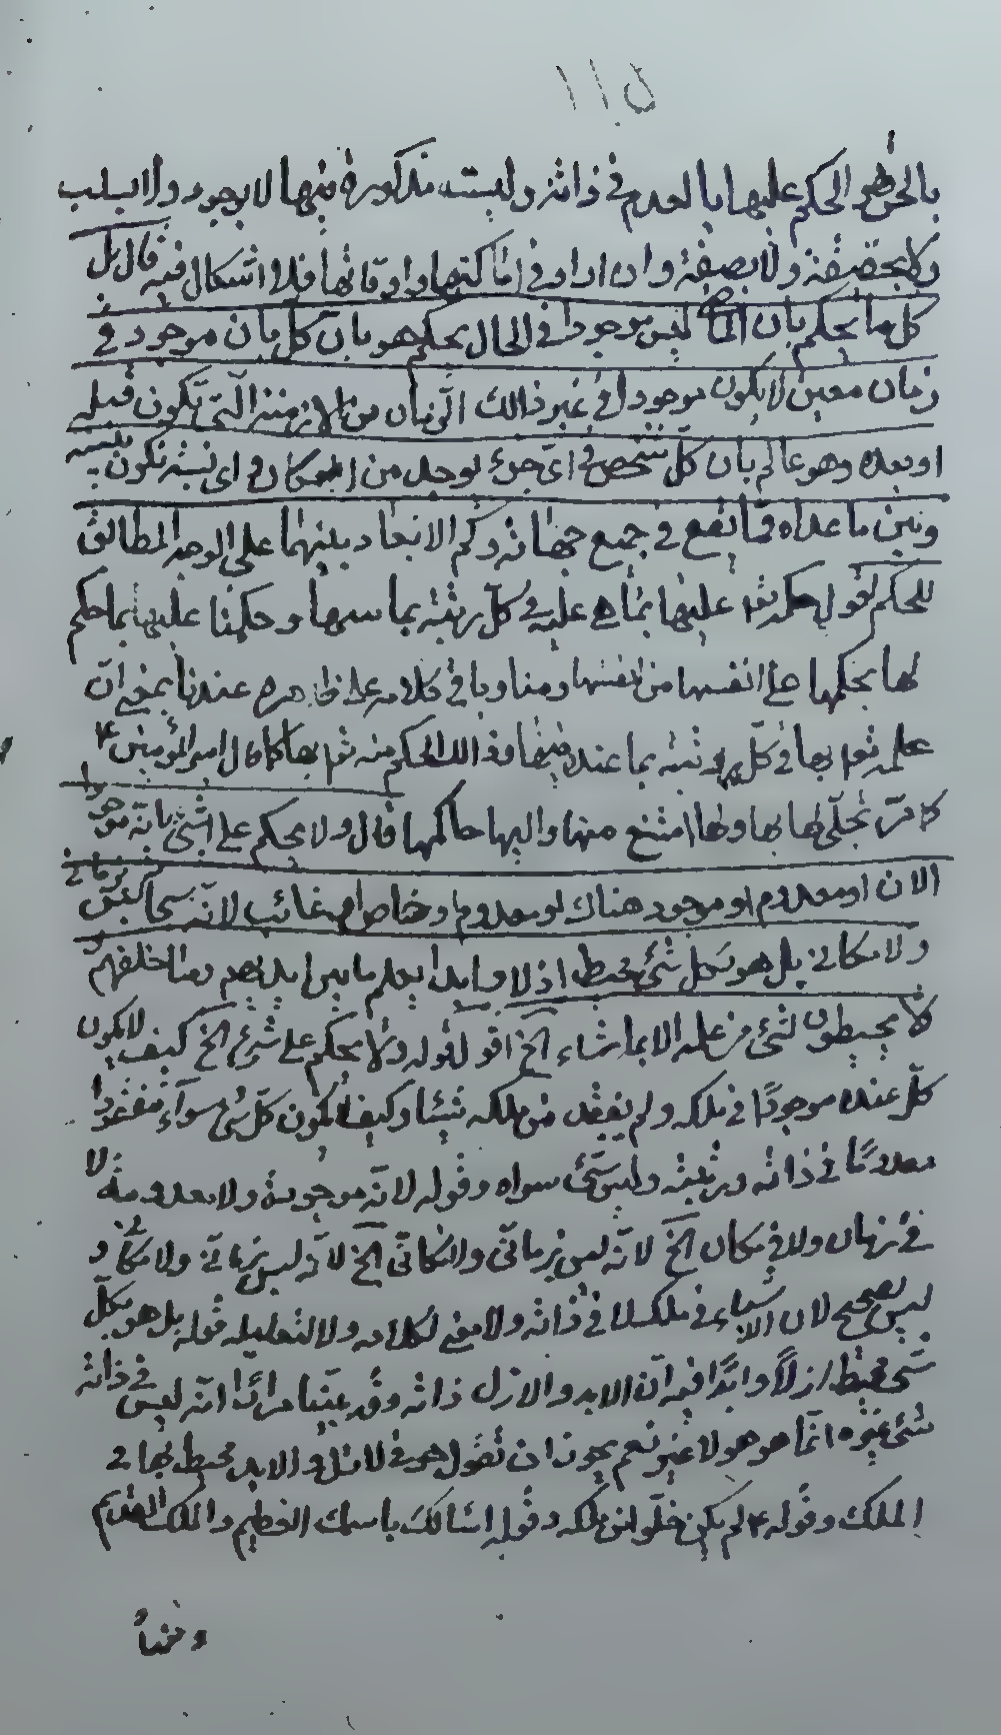 ١١٥
بالحق هو الحكم عليها بالعدم في ذاته وليست مذكورة فيها لا بوجود ولا بسلب
ولا بحقيقة ولا بصفة وان اراد في اماكنها واوقاتها فلا اشكال فيه قال بل
كل ما يحكم بان ليس موجودا في الحال يحكم هو بان كل بان موجود في
زمان معين لا يكون موجودا في غير ذلك الزمان من الازمنة التي تكون قبله
او بعده وهو عالم بان كل شخص في اي جزء يوجد من المكان واي نسبة تكون بينه
وبين ما عداه مما يقع في جميع جهاته وكم الابعاد بينهما على الوجه المطابق
للحكم اقول حكمه تعالى عليها بما هي عليه في كل رتبة بما وحكمنا عليها بما حكم
لها بحكمها على انفسها من انفسها ومنا وباقي كلامه على ظاهره عندنا بمعنى ان
علمه تعالى بها في كل رتبة بما عنده فيها وذلك الحكم منه تعالى بها كما قال امير المؤمنين ع
كما مر تجلى لها بها وبها امتنع منها واليها حاكمها قال ولا يحكم على شئ بانه موجود
الان او معدوم او موجود هناك او معدوم او حاضر او غائب لانه سبحانه ليس بزماني
ولا مكاني بل هو بكل شئ محيط ازلا وابدا يعلم ما بين ايديهم وما خلفهم و
لا يحيطون بشئ من علمه الا بما شاء الخ اقول قوله ولا يحكم على شئ الخ كيف لا يكون
كل عنده موجودا في ملكه ولم يفقد من ملكه شيئا وكيف لا يكون كل شئ سواه مفقودا
معدوما في ذاته ورتبته وليس شئ سواه وقوله لانه موجودة ولا معدومة لا
في زمان ولا في مكان الخ لانه ليس بزماني ولا مكاني الخ لانه ليس بزماني ولا مكاني و
ليس بصحيح لان الاشياء في ملكه لا في ذاته ولا معنى لكلامه ولا لتعليله قوله بل هو بكل
شئ محيط ازلا وابدا فيه ان الابد والازل ذاته وقد بينا مرارا انه ليس في ذاته
شئ غيره انما هو هو لا غير نعم يجوز ان تقول هو في الازل والابد محيط بها في
الملك وقوله ع لم يكن خلوا من ملكه وقوله اسالك باسمك العظيم والملك القديم